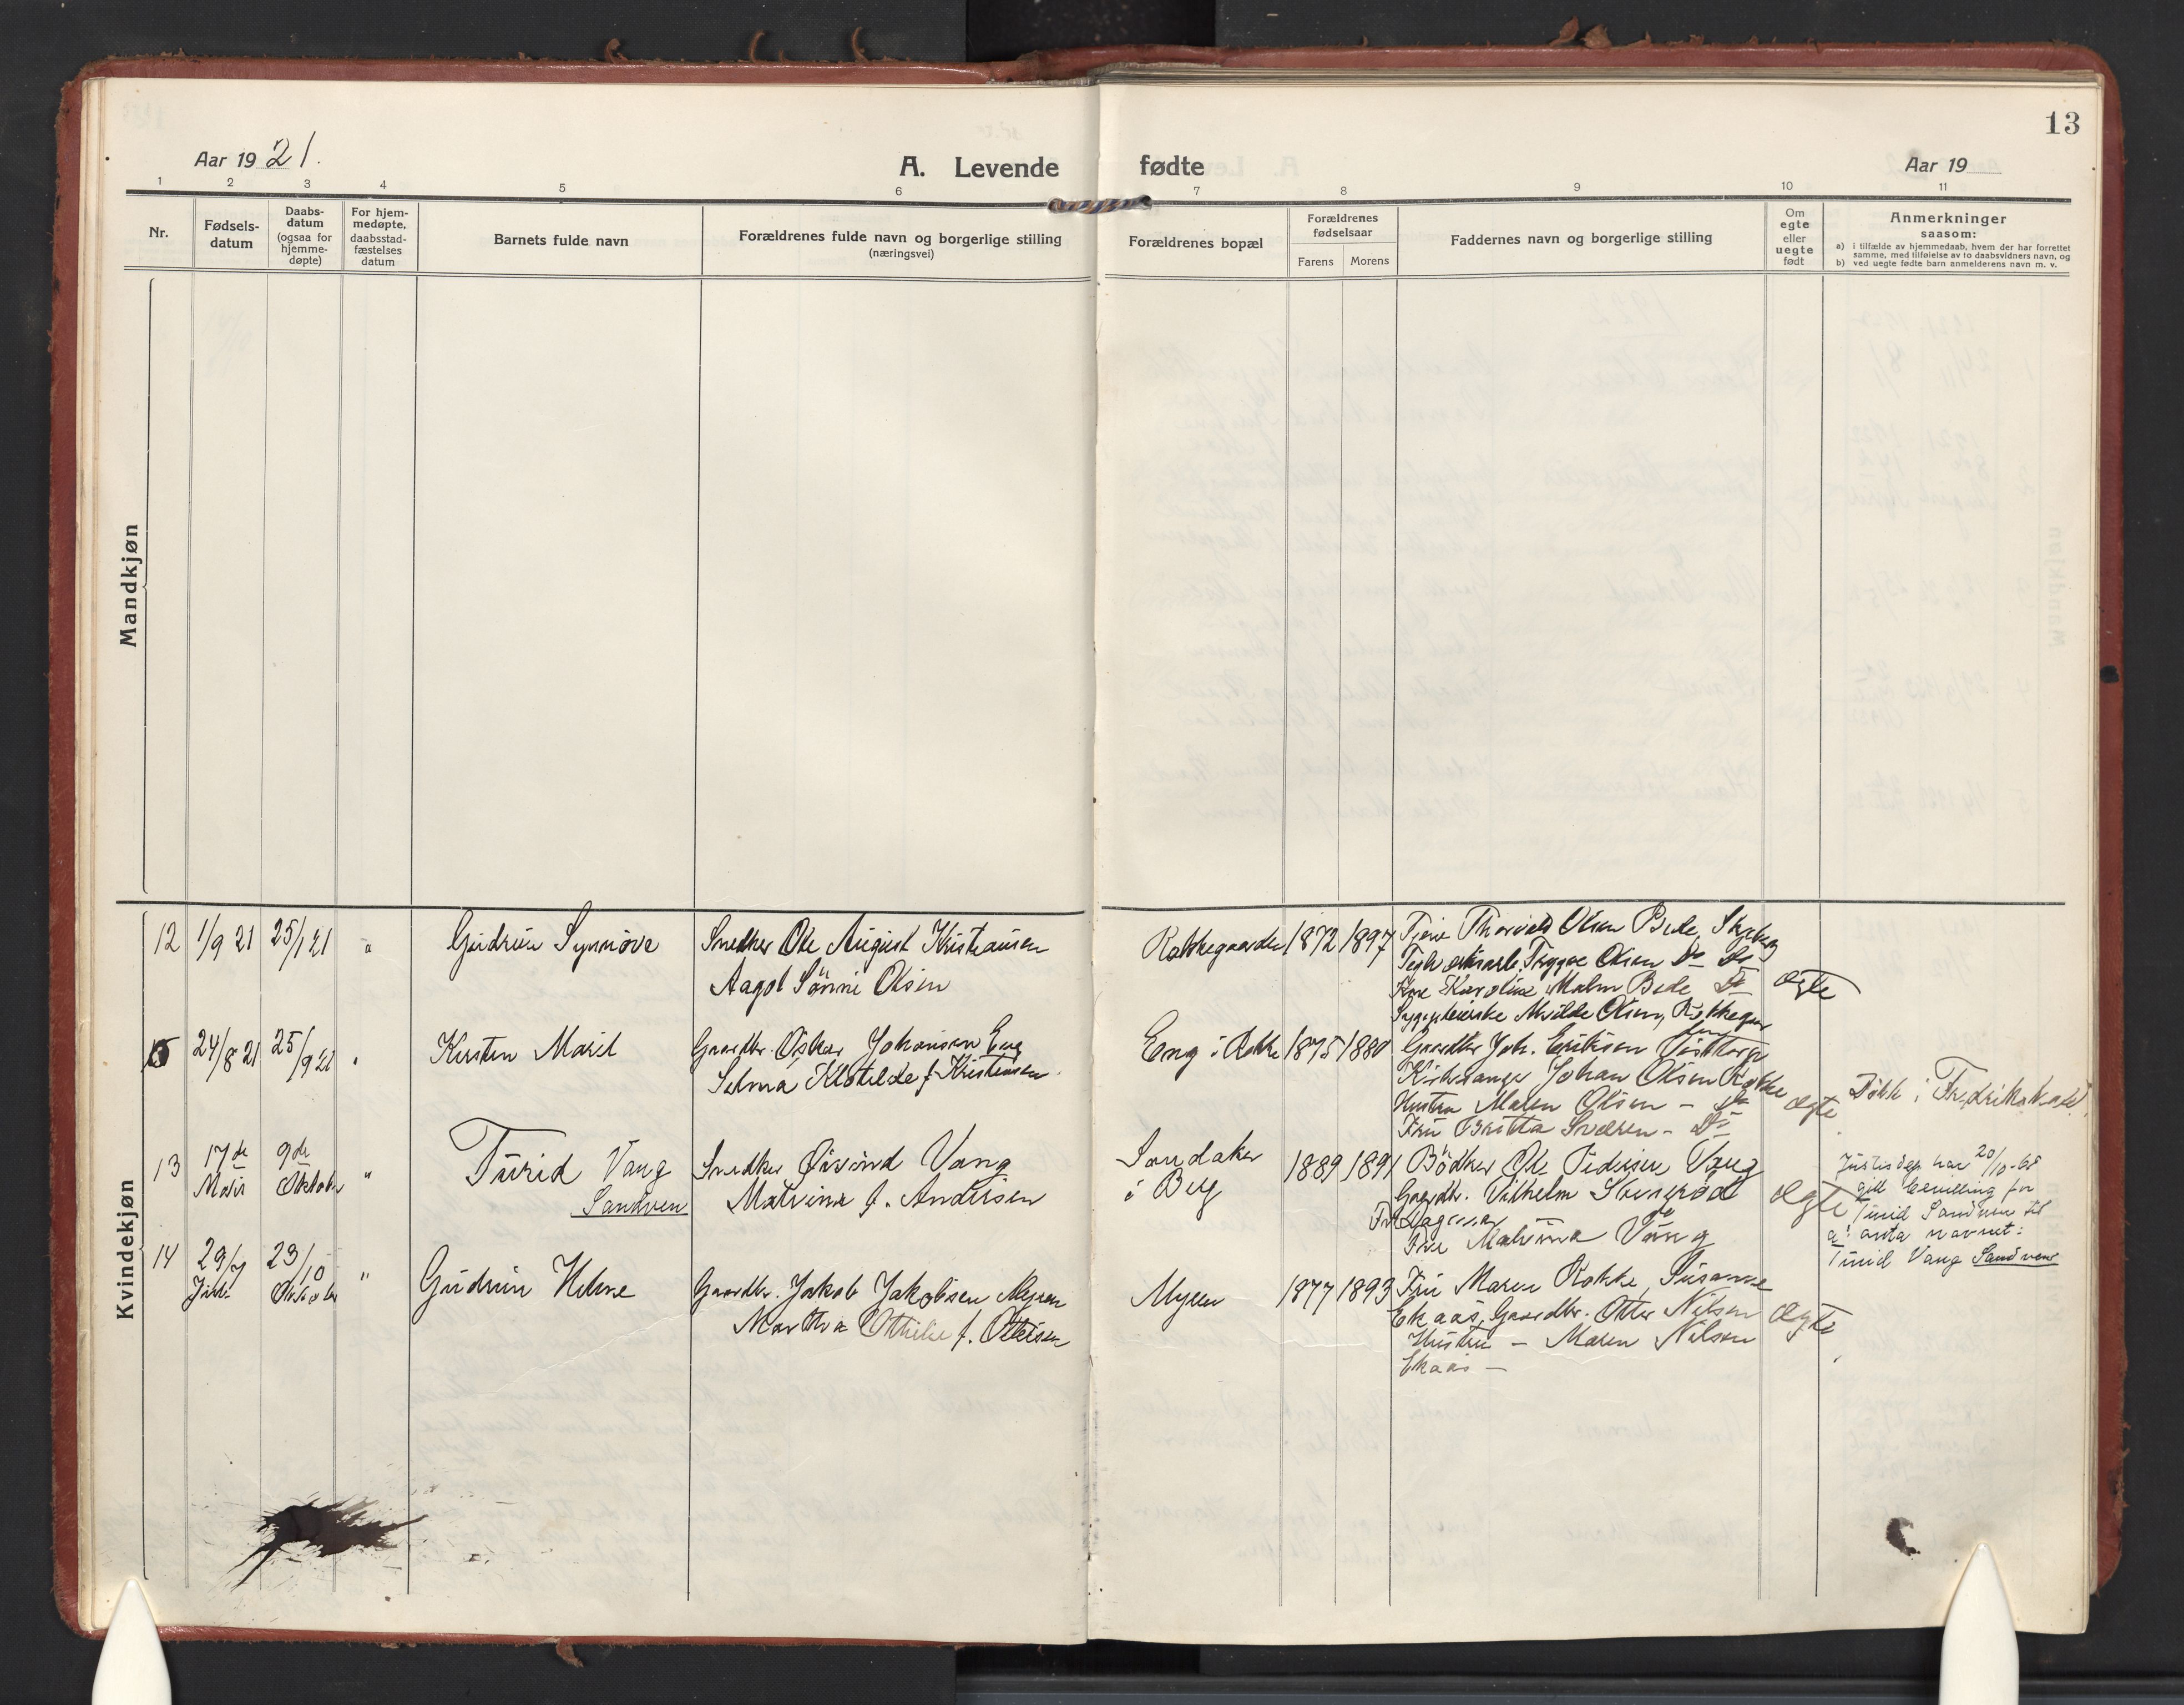 13
Aar 19 21.
A. Levende fødte
Aar 19
1 2 3 4 5 6 7 8 9 10 11
Nr.
Fødsels-
datum
Daabs-
datum
(ogsaa for
hjemme-
døpte)
For hjem-
medøpte,
daabsstad-
fæstelses
datum
Barnets fulde navn
Forældrenes fulde navn og borgerlige stilling
(næringsvei)
Forældrenes bopæl
Forældrenes
fødselsaar
Farens
Morens
Faddernes navn og borgerlige stilling
Om
egte
eller
uegte
født
Anmerkninger
saasom:
a) i tilfælde av hjemmedaab, hvem der har forrettet
samme, med tilføielse av to daabsvidners navn, og
b) ved uegte fødte barn anmelderens navn m. v.
Mandkjøn
Kvindekjøn
12
1/9 21
25/9 21
"
Gudrun Synnøve
Snedker Ole August Kristiansen
Aagot Sønni Olsen
Rokkegaarden
1872
1897
Thorvald Olsen Bede, Skjeberg
Trygve Olsen Do Do
Fru Karoline Malm Bede Do
Milde Olsen, Rokkegaar
den
ægte
24/8 21
25/9 21
"
Kirsten Marit
Gaardbr. Oskar Johansen Eng
Selma Klotilde f. Kristensen.
Eng i Rokke
1875
1880
Gaardbr Joh. Eriksen
Kirkesanger Johan Olsen Rokke
Hustru Maren Olsen - Do
Fru Britta - Do
ægte
Døbt i Fredrikshald.
13
17de
Mars
9de
Oktober
"
Turid Vang
Sandven
Snedker Øivind Vang
Malvina f. Andersen
Sandaker
i Berg
1889
1891
Bödker Ole Pedersen Vang
Gaardbr. Vilhelm
Fru Malvina Vang
ægte
Justisdep har 20/10-65
gitt bevilling for
Turid Sandven til
a anta navnet:
Turid Vang Sandven
14
29/7
Juli
23/10
Oktober
"
Gudrun Helene
Gaardbr. Jakob Jakobsen Myren
Martha Ottilie f. Ottersen
Myren
1877
1893
Fru Maren Rokke, Susanne
Ekaas, Gaardbr. Otter Nilsen
Hustru - Maren Nilsen
Ekaas -
ægte